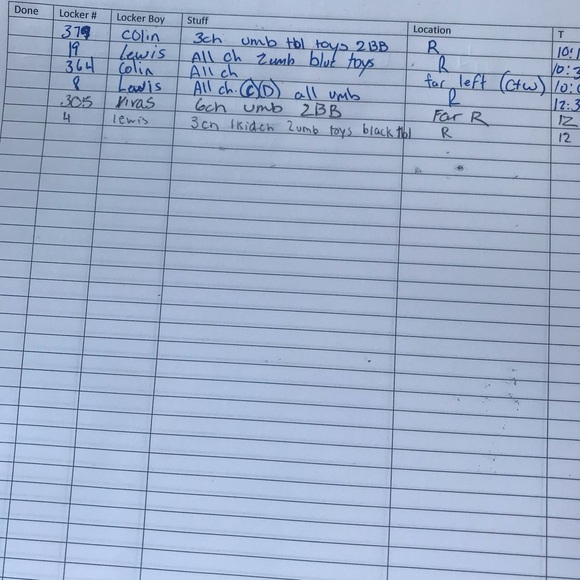 Done Locker # Locker Boy Stuff Location T
379 Colin 3ch umb tbl toys 2BB R 10:1
19 Lewis All ch 2umb blue toys R 10:3
364 Colin All ch far left (ctw) 10:0
8 Lewis All ch. (C)(D) all umb R 12:3
305 6ch umb 2BB Far R 12
4 lewis 3ch 1kidch 2umb toys black tbl R 12